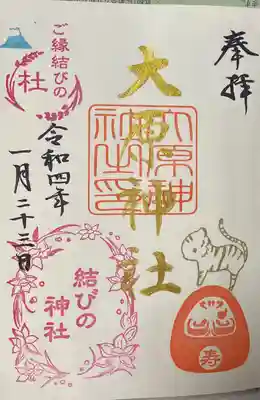 奉拝
大原神社
大原神社之印
ご縁結びの
社
令和四年
一月二十三日
結びの
神社
寿